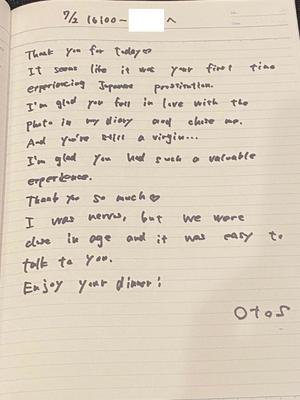 7/2 16:00~ へ
Thank you for today♡
It seems like it was your first time
experiencing Japanese prostitution.
I'm glad you fell in love with the
photo in my diary and chose me.
And you're still a virgin...
I'm glad you had such a valuable
experience.
Thank you so much♡
I was nervus, but we were
close in age and it was easy to
talk to you.
Enjoy your dinner!